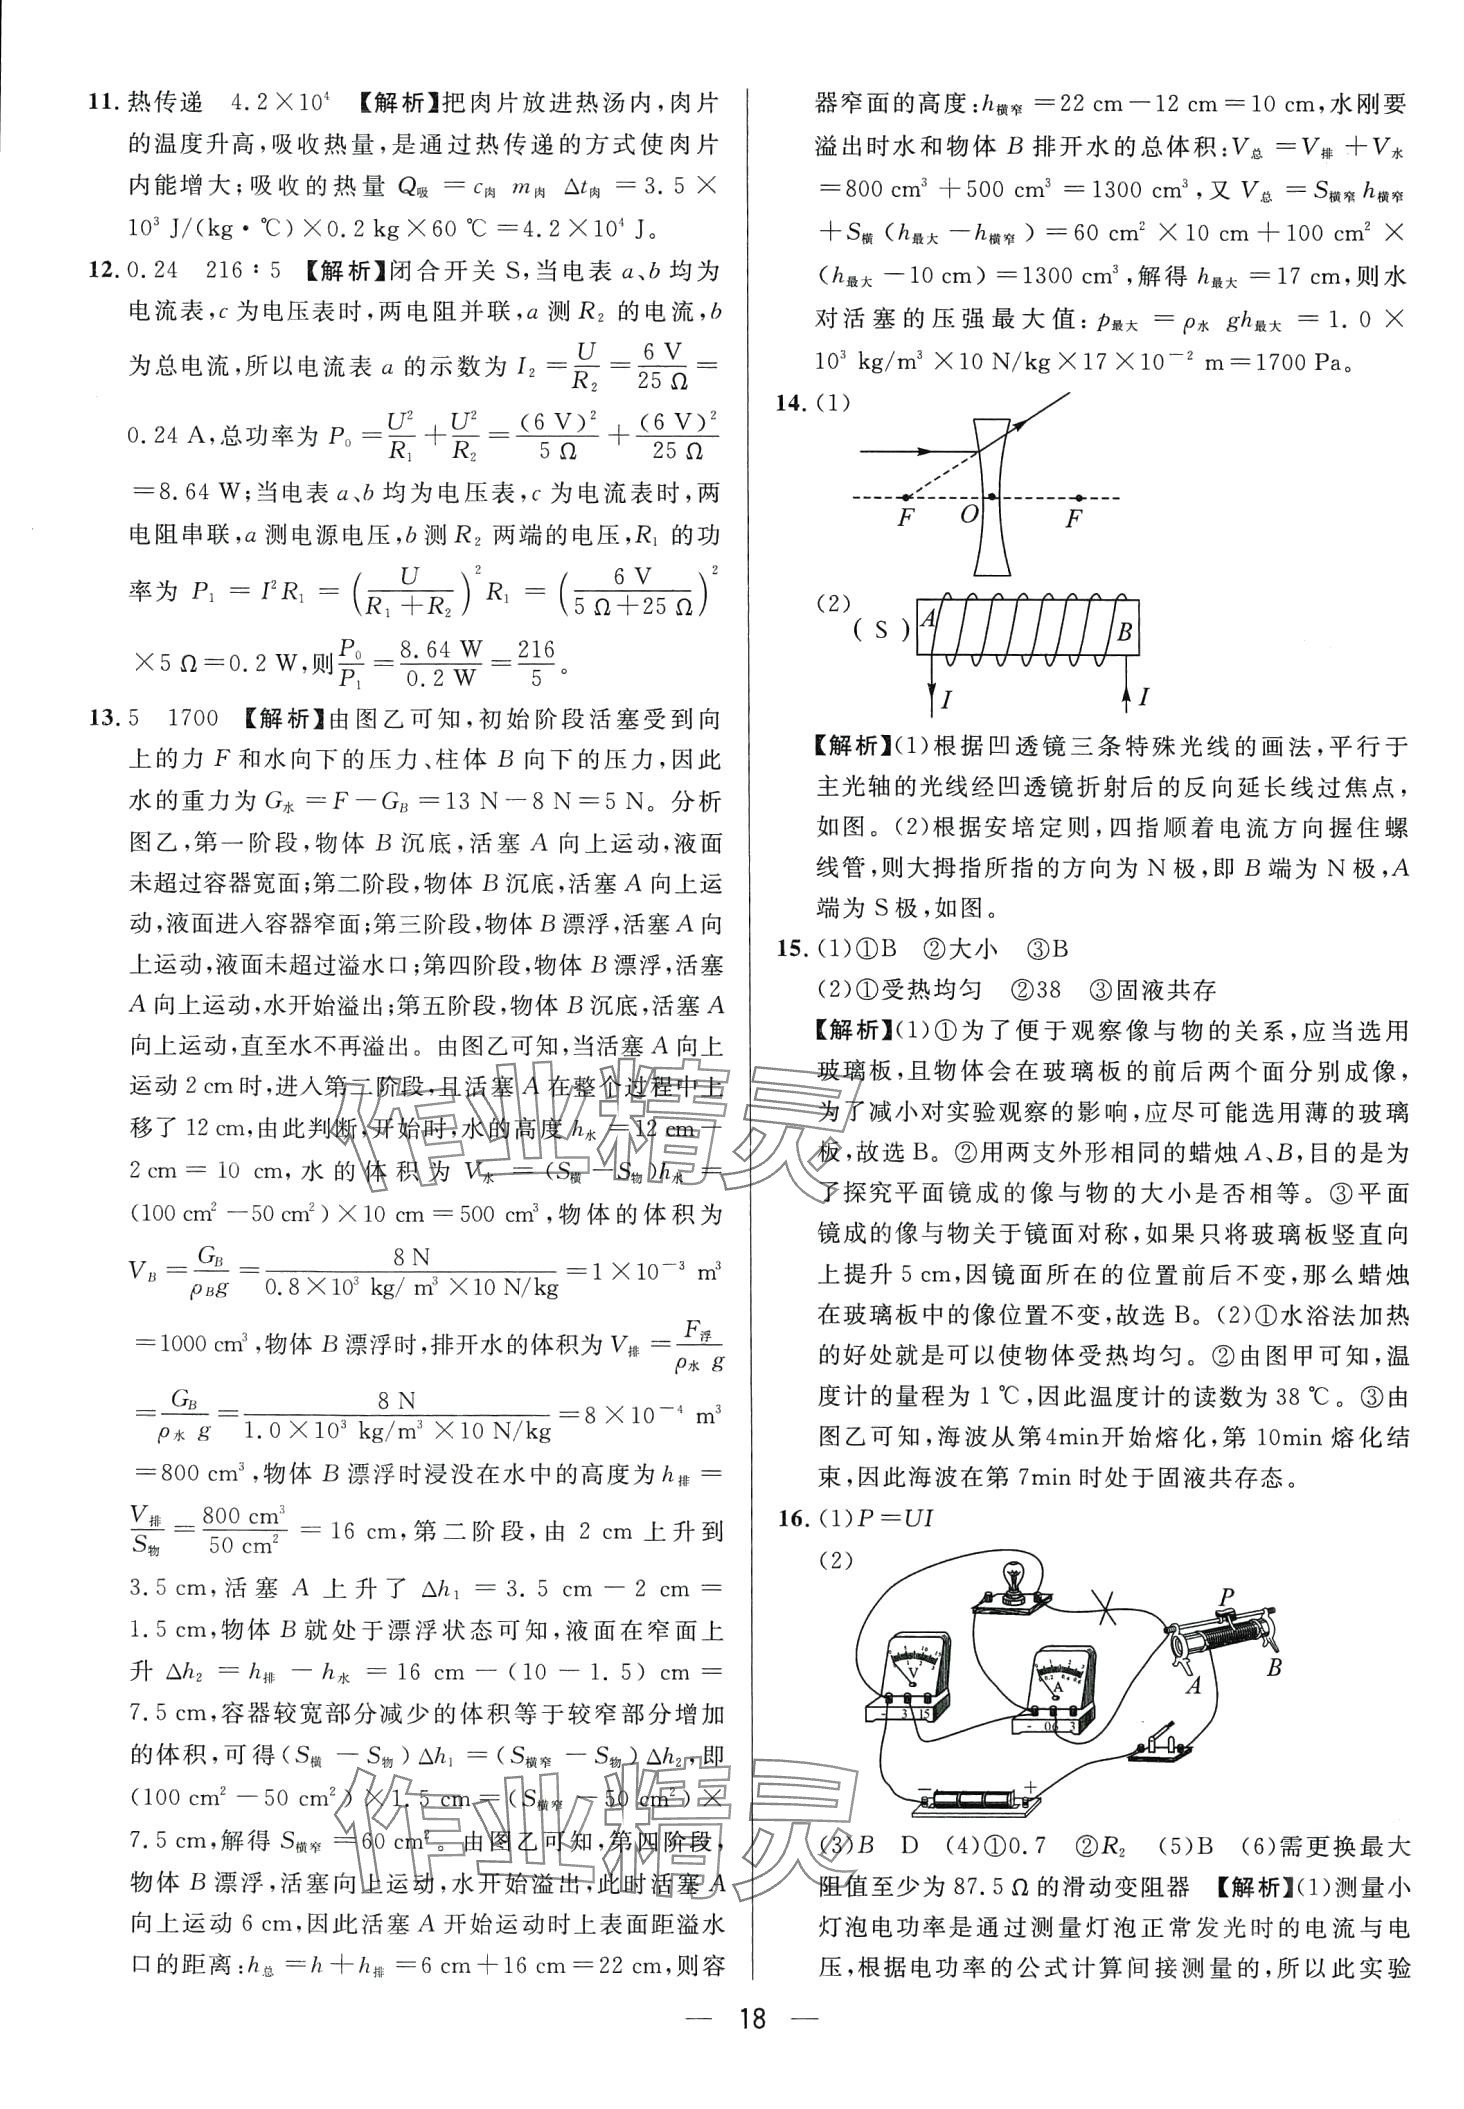 11. 热传递　4.2×10⁴　【解析】把肉片放进热汤内,肉片
的温度升高,吸收热量,是通过热传递的方式使肉片
内能增大;吸收的热量 Q吸 = c肉 m肉 Δt肉 = 3.5×
10³ J/(kg·℃)×0.2 kg×60 ℃=4.2×10⁴ J。
12. 0.24　216∶5　【解析】闭合开关 S,当电表 a、b 均为
电流表,c 为电压表时,两电阻并联,a 测 R₂ 的电流,b
为总电流,所以电流表 a 的示数为 I₂ = U/R₂ = 6 V/25 Ω =
0.24 A,总功率为 P₀ = U²/R₁ + U²/R₂ = (6 V)²/5 Ω + (6 V)²/25 Ω
=8.64 W;当电表 a、b 均为电压表,c 为电流表时,两
电阻串联,a 测电源电压,b 测 R₂ 两端的电压,R₁ 的功
率为 P₁ = I²R₁ = (U/(R₁+R₂))² R₁ = (6 V/(5 Ω+25 Ω))²
×5 Ω=0.2 W,则 P₀/P₁ = 8.64 W/0.2 W = 216/5。
13. 5　1700　【解析】由图乙可知,初始阶段活塞受到向
上的力 F 和水向下的压力、柱体 B 向下的压力,因此
水的重力为 G水 =F-G_B=13 N-8 N=5 N。分析
图乙,第一阶段,物体 B 沉底,活塞 A 向上运动,液面
未超过容器宽面;第二阶段,物体 B 沉底,活塞 A 向上运
动,液面进入容器窄面;第三阶段,物体 B 漂浮,活塞 A 向
上运动,液面未超过溢水口;第四阶段,物体 B 漂浮,活塞
A 向上运动,水开始溢出;第五阶段,物体 B 沉底,活塞 A
向上运动,直至水不再溢出。由图乙可知,当活塞 A 向上
运动 2 cm 时,进入第二阶段,且活塞 A 在整个过程中上
移了 12 cm,由此判断,开始时,水的高度 h水 =12 cm-
2 cm=10 cm,水的体积为 V水 =(S横-S物)h水 =
(100 cm²-50 cm²)×10 cm=500 cm³,物体的体积为
V_B = G_B/(ρ_B g) = 8 N/(0.8×10³ kg/m³×10 N/kg) =1×10⁻³ m³
=1000 cm³,物体 B 漂浮时,排开水的体积为 V排 = F浮/(ρ水 g)
= G_B/(ρ水 g) = 8 N/(1.0×10³ kg/m³×10 N/kg) =8×10⁻⁴ m³
=800 cm³,物体 B 漂浮时浸没在水中的高度为 h排 =
V排/S物 = 800 cm³/50 cm² = 16 cm,第二阶段,由 2 cm 上升到
3.5 cm,活塞 A 上升了 Δh₁ = 3.5 cm - 2 cm =
1.5 cm,物体 B 就处于漂浮状态可知,液面在窄面上
升 Δh₂ = h排 - h水 = 16 cm-(10-1.5) cm =
7.5 cm,容器较宽部分减少的体积等于较窄部分增加
的体积,可得(S横 -S物)Δh₁=(S横窄 -S物)Δh₂,即
(100 cm²-50 cm²)×1.5 cm=(S横窄 -50 cm²)×
7.5 cm,解得 S横窄 =60 cm²。由图乙可知,第四阶段,
物体 B 漂浮,活塞向上运动,水开始溢出,此时活塞 A
向上运动 6 cm,因此活塞 A 开始运动时上表面距溢水
口的距离:h总 =h+h排 =6 cm+16 cm=22 cm,则容
器窄面的高度:h横窄 =22 cm-12 cm=10 cm,水刚要
溢出时水和物体 B 排开水的总体积:V总 =V排 +V水
=800 cm³+500 cm³=1300 cm³,又 V总 =S横窄 h横窄
+S横(h最大 -h横窄)=60 cm²×10 cm+100 cm²×
(h最大 -10 cm)=1300 cm³,解得 h最大 =17 cm,则水
对活塞的压强最大值:p最大 =ρ水 gh最大 =1.0×
10³ kg/m³×10 N/kg×17×10⁻² m=1700 Pa。
14. (1)
F O F
(2)
(S) A B
I I
【解析】(1)根据凹透镜三条特殊光线的画法,平行于
主光轴的光线经凹透镜折射后的反向延长线过焦点,
如图。(2)根据安培定则,四指顺着电流方向握住螺
线管,则大拇指所指的方向为 N 极,即 B 端为 N 极,A
端为 S 极,如图。
15. (1)①B　②大小　③B
(2)①受热均匀　②38　③固液共存
【解析】(1)①为了便于观察像与物的关系,应当选用
玻璃板,且物体会在玻璃板的前后两个面分别成像,
为了减小对实验观察的影响,应尽可能选用薄的玻璃
板,故选 B。②用两支外形相同的蜡烛 A、B,目的是为
了探究平面镜成的像与物的大小是否相等。③平面
镜成的像与物关于镜面对称,如果只将玻璃板竖直向
上提升 5 cm,因镜面所在的位置前后不变,那么蜡烛
在玻璃板中的像位置不变,故选 B。(2)①水浴法加热
的好处就是可以使物体受热均匀。②由图甲可知,温
度计的量程为 1 ℃,因此温度计的读数为 38 ℃。③由
图乙可知,海波从第4min开始熔化,第 10min 熔化结
束,因此海波在第 7min 时处于固液共存态。
16. (1)P=UI
(2)
P
A B
V
- 3 15
A
- 0.6 3
- +
(3)B　D　(4)①0.7　②R₂　(5)B　(6)需更换最大
阻值至少为 87.5 Ω 的滑动变阻器　【解析】(1)测量小
灯泡电功率是通过测量灯泡正常发光时的电流与电
压,根据电功率的公式计算间接测量的,所以此实验
— 18 —
作业精灵
作业精灵